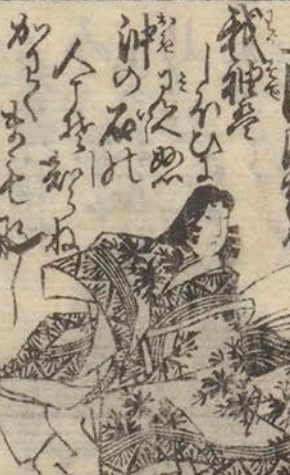 我袖は
しほひに
見えぬ
沖の石の
人こそ知らね
かわくまもなし